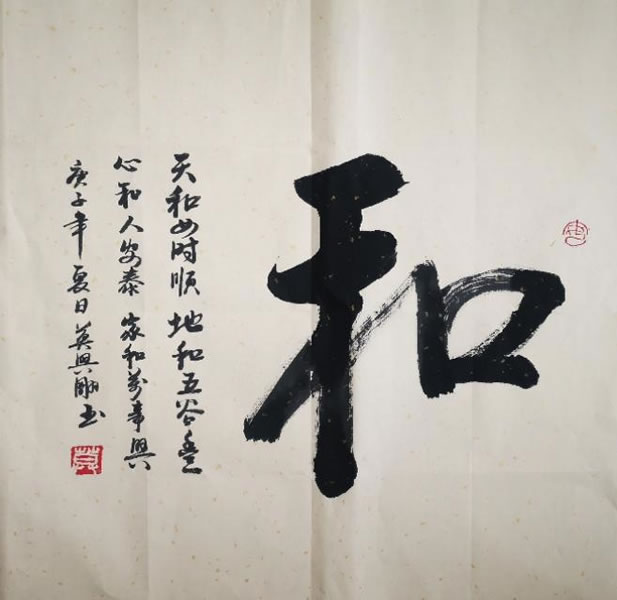 和
天和四时顺 地和五谷豐
心和人安泰 家和萬事興
庚子年夏日 興 书